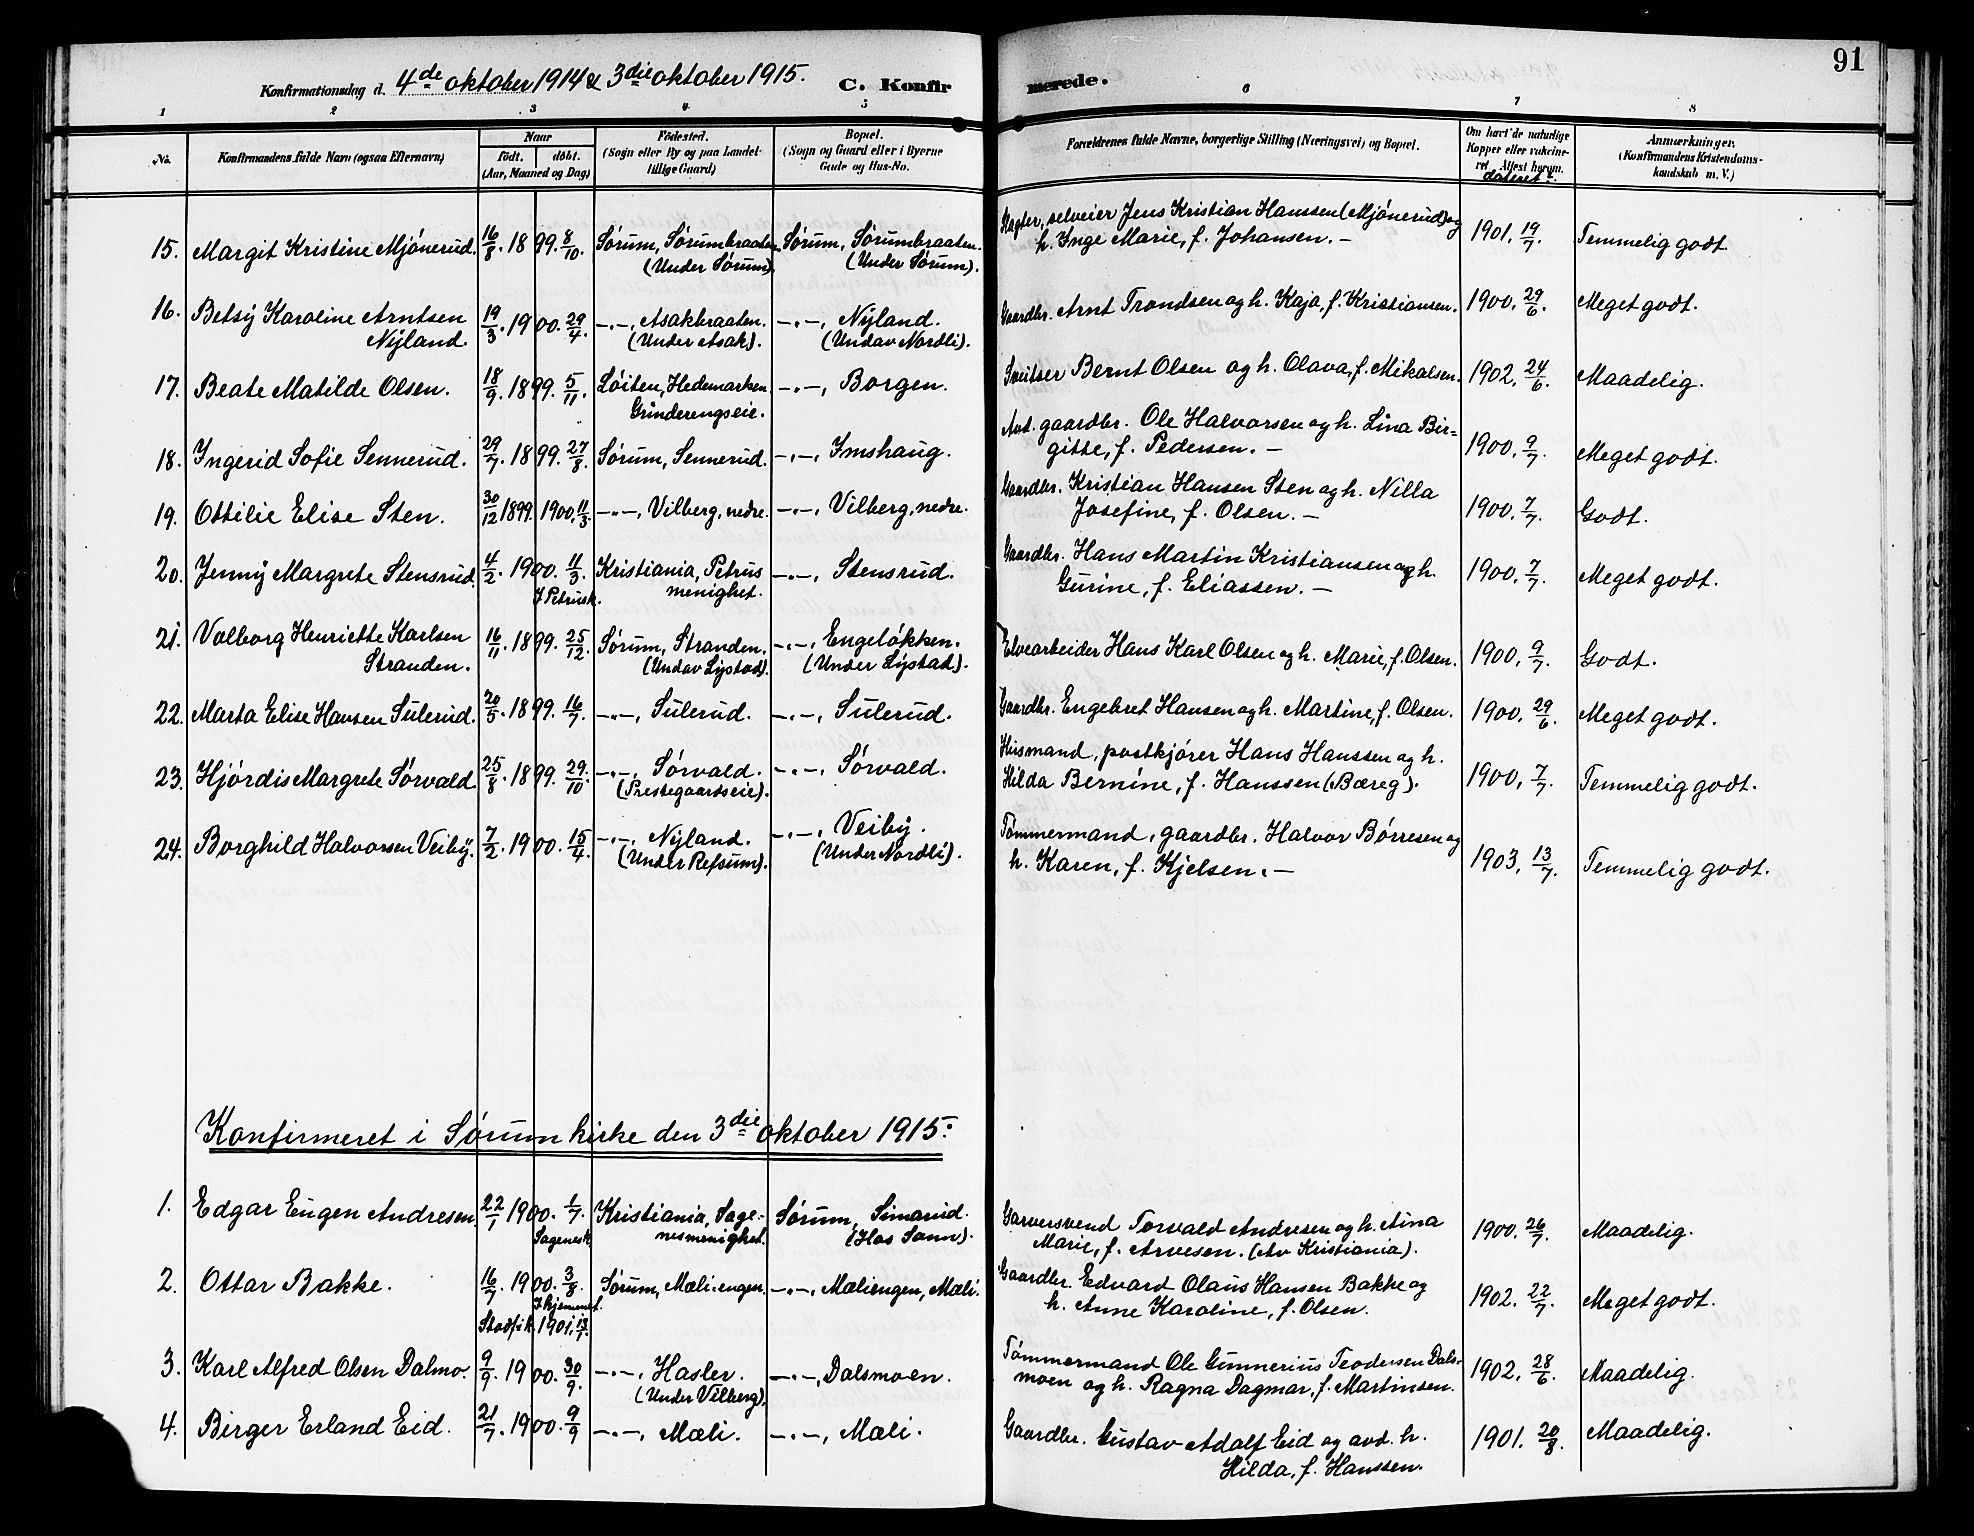 91
Konfirmationsdag d. 4de oktober 1914 & 3die oktober 1915. C. Konfirmerede.
1 2 3 4 5 6 7 8
No. Konfirmandens fulde Navn (ogsaa Efternavn) Naar födt. döbt. (Aar, Maaned og Dag) Födested. (Sogn eller By og paa Landet tillige Gaard) Bopæl. (Sogn og Gaard eller i Byerne Gade og Hus-No. Forældrenes fulde Navne, borgerlige Stilling (Næringsvei) og Bopæl. Om havt de naturlige Kopper eller vakcineret. Attest herom. dateret: Anmærkninger. (Konfirmandens Kristendomskundskab m. V.)
15. Margit Kristine Mjónerud. 16/8. 1899. 8/10. Sørum, Sørumbraaten. (Under Sørum). Sørum, Sørumbraaten. (Under Sørum). selveier Jens Kristian Hanssen (Mjónerud) og
h. Inge Marie, f. Johansen. – 1901. 19/7. Temmelig godt.
16. Betsy Karoline Arntsen Nyland. 19/3. 1900. 29/4. –"–, Asakbraaten. (Under Asak). –"–, Nyland. (Undav Nordli). Gaardbr. Arnt Trondsen og h. Kaja, f. Kristiansen. 1900. 29/6. Meget godt.
17. Beate Matilde Olsen. 18/9. 1899. 5/11. Løiten, Hedemarken. Grinderengseie. –"–, Borgen. Sveitser Bernt Olsen og h. Olava, f. Mikalsen. 1902. 24/6. Maadelig.
18. Ingerid Sofie Sennerud. 29/7. 1899. 27/8. Sørum, Sennerud. –"–, Imshaug. Avd. gaardbr. Ole Halvorsen og h. Lina Bir-
gitte, f. Pedersen. – 1900. 9/7. Meget godt.
19. Ottilie Elise Sten. 30/12 1899. 1900. 11/3. –"–, Vilberg, nedre. –"–, Vilberg, nedre. Gaardbr. Kristian Hansen Sten og h. Nilla
Josefine, f. Olsen. – 1900. 7/7. Godt.
20. Jenny Margrete Stensrud. 4/2. 1900. 11/3. I Petrusk. Kristiania, Petrus menighet. –"–, Stensrud. Gaardbr. Hans Martin Kristiansen og h.
Gurine, f. Eliassen. – 1900. 7/7. Meget godt.
21. Valborg Henriette Karlsen Stranden. 16/11. 1899. 25/12. Sørum, Stranden. (Undav Lystad). –"–, Engeløkken. (Under Lystad). Elvearbeider Hans Karl Olsen og h. Marie, f. Olsen. 1900. 9/7. Godt.
22. Marta Elise Hansen Sulerud. 20/5. 1899. 16/7. –"–, Sulerud. –"–, Sulerud. Gaardbr. Engebret Hansen og h. Martine, f. Olsen. 1900. 29/6. Meget godt.
23. Hjördis Margrete Sørvald. 25/8. 1899. 29/10. –"–, Sørvald. (Prestegaardseie). –"–, Sørvald. Husmand, postkjører Hans Hanssen og h.
Hilda Bernine, f. Hanssen (Bæreg). 1900. 7/7. Temmelig godt.
24. Borghild Halvorsen Veiby. 7/2. 1900. 15/4. –"–, Nyland. (Under Refsum). –"–, Veiby. (Under Nordli). Tømmermand, gaardbr. Halvor Børresen og
h. Karen, f. Kjelsen. – 1903. 13/7. Temmelig godt.
Konfirmeret i Sørum kirke den 3die oktober 1915:
1. Edgar Eugen Andresen. 22/1 1900. 1/7. Sagenesk. Kristiania, Sage-nesmenighet. Sørum, Simarud. (Hos Sann). Garversvend Torvald Andresen og h. Aina
Marie, f. Arvesen. (Av Kristiania). 1900. 26/7. Maadelig.
2. Ottar Bakke. 16/7. 1900. 3/8. I hjemmet. Stadf. i k. 1901. 13/1. Sørum, Mæliengen. –"–, Mæliengen, Mæli. Gaardbr. Edvard Olaus Hansen Bakke og
h. Anne Karoline, f. Olsen. 1902. 22/7. Meget godt.
3. Karl Alfred Olsen Dalmo. 9/9. 1900. 30/9. –"–, Hasler. (Under Vilberg). –"–, Dalsmoen. Tømmermand Ole Gunnerius Teodersen Dals-
moen og h. Ragna Dagmar, f. Martinsen. 1902. 28/6. Maadelig.
4. Birger Erland Eid. 21/7. 1900. 9/9 –"–, Mæli. –"–, Mæli. Gaardbr. Gustav Adolf Eid og avd. h.
Hilda, f. Hanssen. 1901. 20/8. Maadelig.